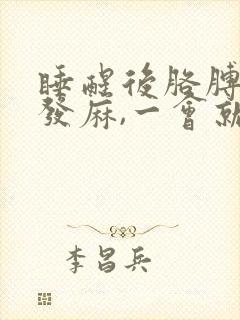 睡醒後胳膊
發麻,一會就
李昌兵